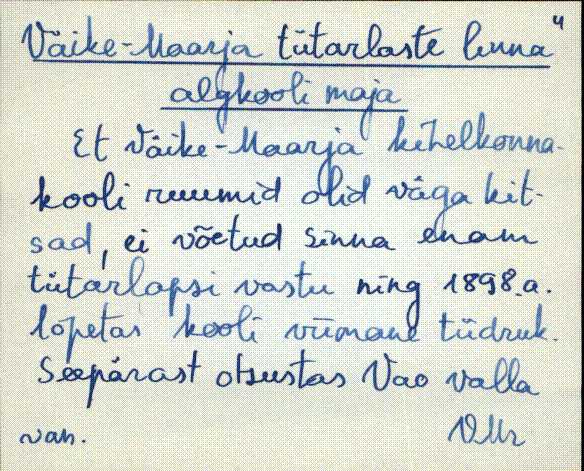 4
Väike-Maarja tütarlaste linna
algkooli maja
Et Väike-Maarja kihelkonna-
kooli ruumid olid väga kit-
sad, ei võetud sinna enam
tütarlapsi vastu ning 1898.a.
lõpetas kooli viimane tüdruk.
Seepärast otsustas Vao valla
van. VMr